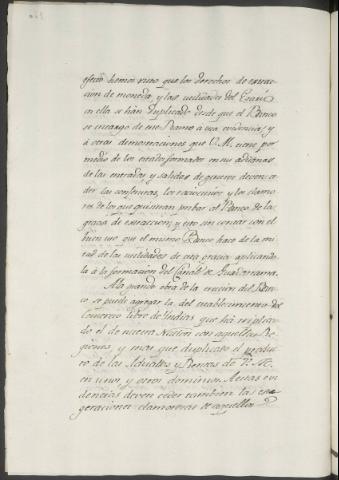 efecto hemos visto que los derechos de extrac-
cion de moneda, y las utilidades del Erario
en ella se hàn duplicado desde que el Banco
se encargò de este Ramo: à esta evidencia, y
à otras demostraciones que V.M. tiene por
medio de los estados formados en sus aduanas
de las entradas y salidas de generos deven ce-
der las conjeturas, los raciocinios y los clamo-
res de los que quisieran pribar al Banco de la
gracia de extraccion; y esto sin contar con el
buen uso que el mismo Banco hace de la mi-
tad de las utilidades de esta gracia aplicando-
la à la formacion del Canal de Guadarrama.
A la grande obra de la ereccion del Ban-
co se puede agregar la del establecimiento del
Comercio libre de Indias que hà triplica-
do el de nuestra Nacion con aquellas Re-
giones, y mas que duplicado el produc-
to de las Aduanas y Rentas de V.M.
en unos y otros dominios. A estas evi-
dencias deven ceder tambien las exa-
geraciones clamorosas de aquellos